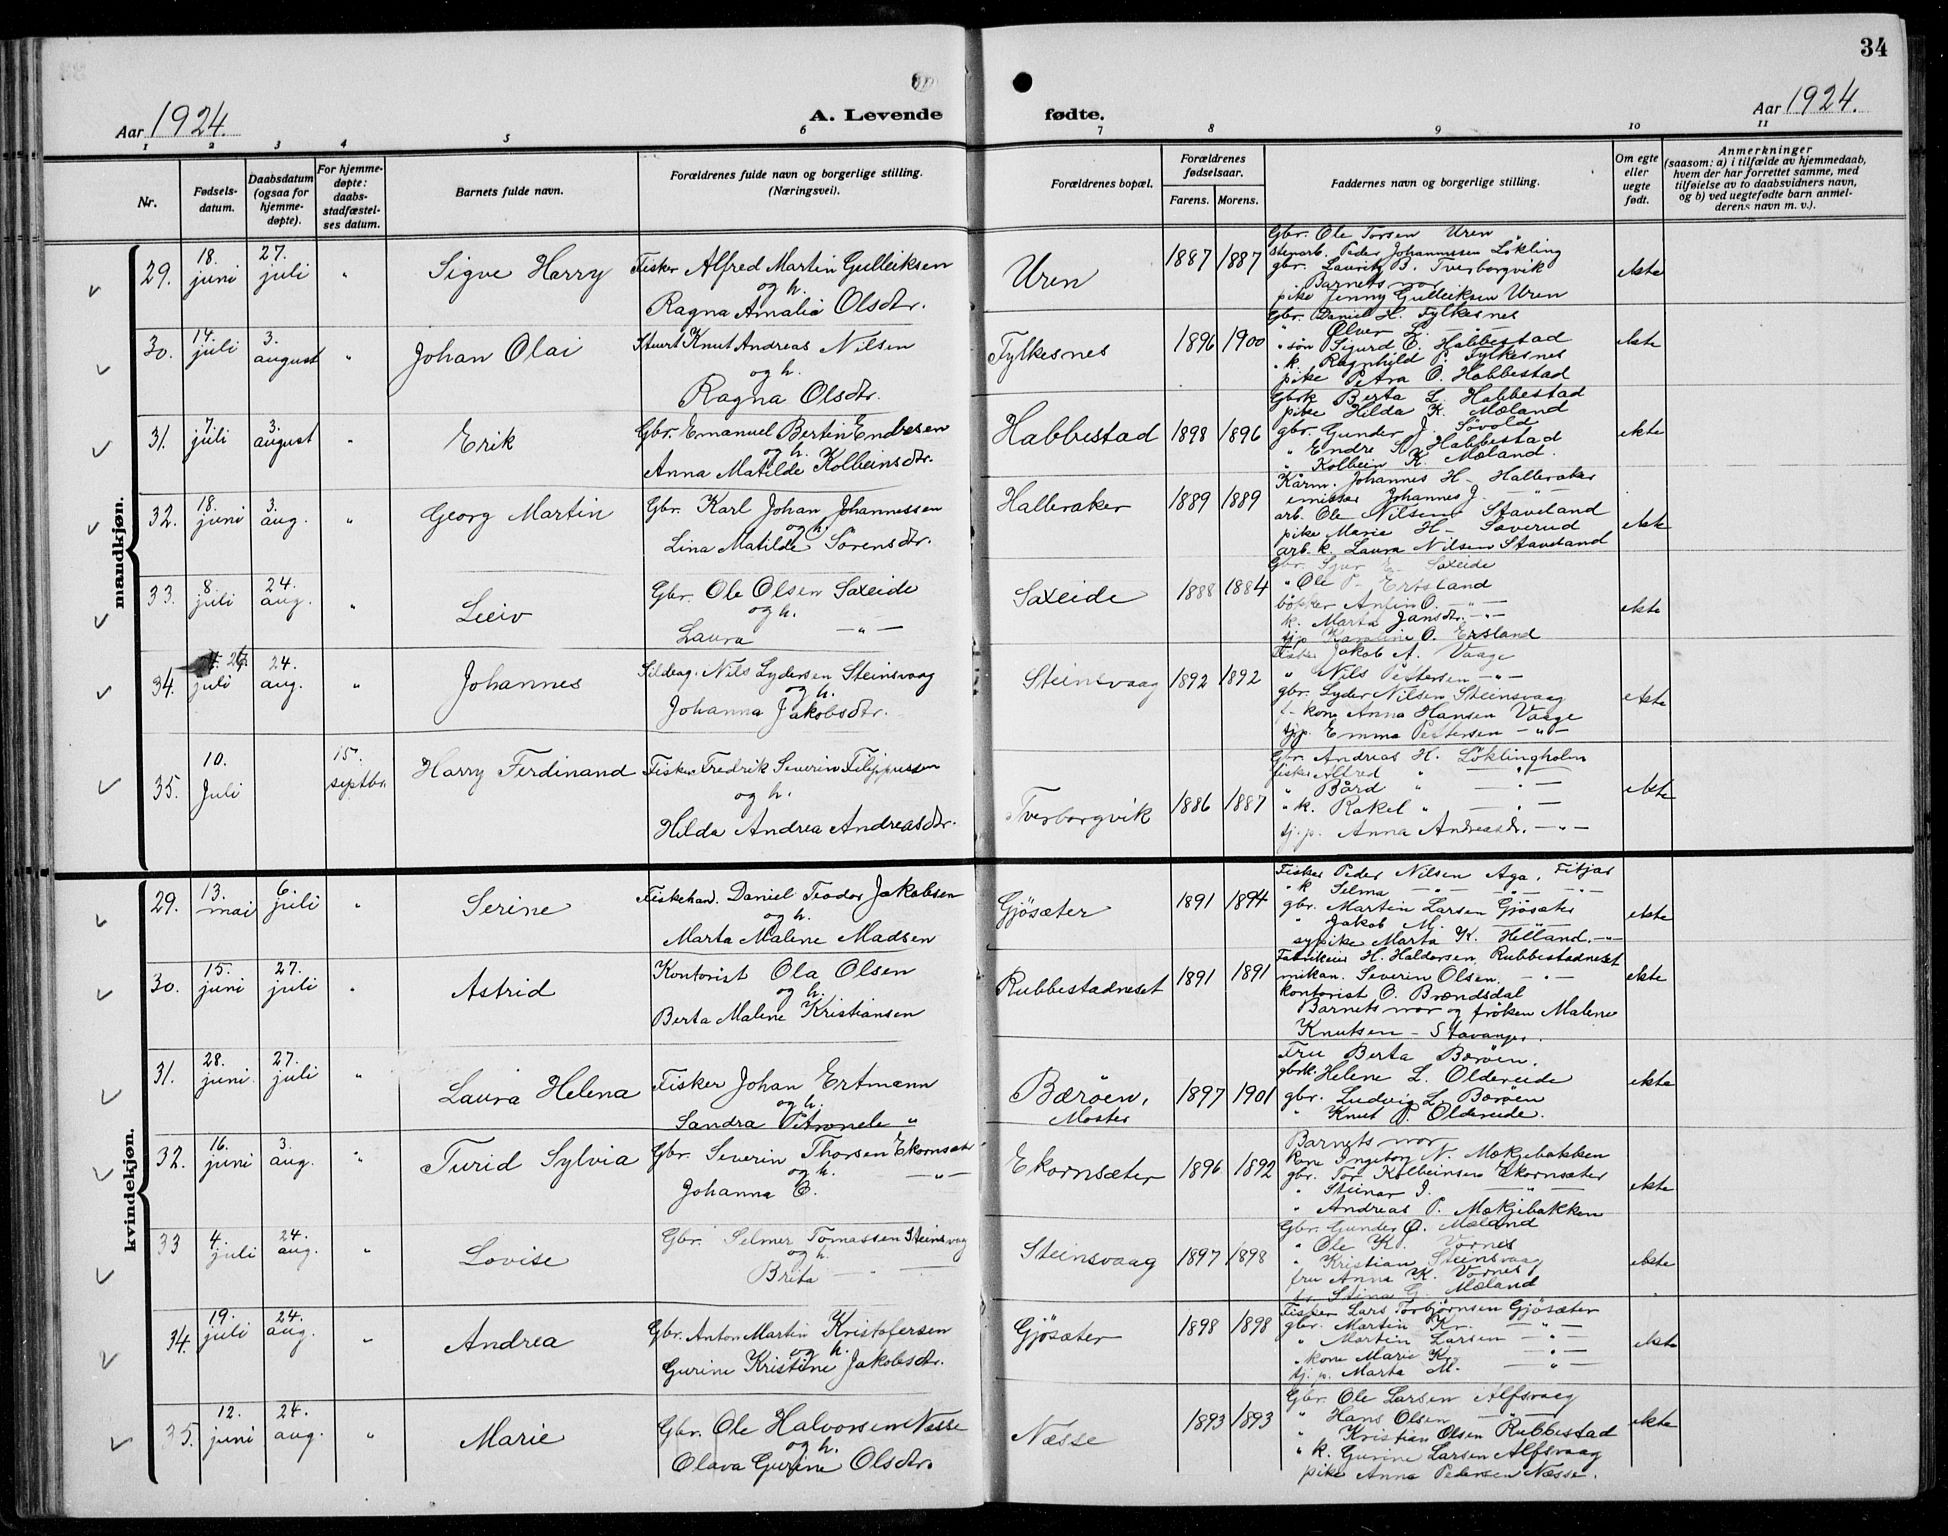 34
Aar 1924. A. Levende fødte. Aar 1924.
1 2 3 4 5 6 7 8 9 10 11
Nr.
Fødsels-
datum.
Daabsdatum
(ogsaa for
hjemme-
døpte).
For hjemme-
døpte:
daabs-
stadfæstel-
ses datum.
Barnets fulde navn.
Forældrenes fulde navn og borgerlige stilling.
(Næringsvei).
Forældrenes bopæl.
Forældrenes
fødselsaar.
Farens. Morens.
Faddernes navn og borgerlige stilling.
Om egte
eller
uegte
født.
Anmerkninger
(saasom: a) i tilfælde av hjemmedaab,
hvem der har forrettet samme, med
tilføielse av to daabsvidners navn,
og b) ved uegtefødte barn anmel-
derens navn m. v.).
mandkjøn.
29. 18. juni 27. juli " Sigve Harry
Fisker Alfred Martin Gulleiksen
og h.
Ragna Amalia Olsdtr.
Uren 1887 1887
Gbr. Ole Torsen Uren
stenarb. Peder Johannessen Løkling
gbr. Lauritz B. Tverborgvik
Barnets mor
pike Jenny Gulleiksen Uren
ekte
30. 14. juli 3. august " Johan Olai
Stuert Knut Andreas Nilsen
og h.
Ragna Olsdtr.
Fylkesnes 1896 1900
Gbr. Daniel H. Fylkesnes
" Ølver L. — " —
" søn Sigurd E. Habbestad
" k. Ragnhild P. Fylkesnes
pike Petra O. Habbestad
ekte
31. 7. juli 3. august " Erik
Gbr. Emanuel Bertin Endresen
og h.
Anna Matilde Kolbeinsdtr.
Habbestad 1898 1896
Gbrk Berta L. Habbestad
pike Hilda K. Mæland
gbr. Gunder J. Søvold
" Endre A. Habbestad
" Kolbein K. Mæland.
ekte
32. 18. juni 3. aug. " Georg Martin
Gbr. Karl Johan Johannessen
og h.
Lina Matilde Sørensdtr.
Halleraker 1889 1889
Johannes H. Halleraker
emissær Johannes J. — " —
arb. Ole Nilsen Staveland
pike Marie H. Saverud
arb. k. Laura Nilsen Staveland
ekte
33. 8. juli 24. aug. " Leiv
Gbr. Ole Olsen Saxeide
og h.
Laura — " —
Saxeide 1888 1884
Gbr. Sjur E. Saxeide
" Ole P. Ersland
bøkker Anfin O. — " —
k. Marta Jansdtr. — " —
tjp Karoline O. Ersland
ekte
34. 26. juli 24. aug. " Johannes
Sildeag. Nils Lydersen Steinsvaag
og h.
Johanna Jakobsdtr.
Steinsvaag 1892 1892
Fisker Jakob A. Vaage
" Nils Pettersen — " —
gbr. Lyder Nilsen Steinsvaag
f- kone Anna Hansen Vaage
tjp. Emma Pettersen — " —
ekte
35. 10. Juli 15. septbr. Harry Ferdinand
Fisker Fredrik Severin Filippussen
og h.
Hilda Andrea Andreasdtr.
Tverborgvik 1886 1887
Gbr. Andreas H. Løklingholm
fisker Alfred " — " —
" Bård " — " —
" k. Rakel " — " —
tj. p. Anna Andreasdtr. — " —
ekte
kvindekjøn.
29. 13. mai 6. juli " Serine
Fiskehan. Daniel Teodor Jakobsen
og h.
Marta Malene Madsen
Gjøsæter 1891 1894
Fisker Peder Nilsen Aga, Fitjar
" k Selma — " — — " — — " —
gbr. Martin Larsen Gjøsæter
" Jakob M. — " —
sypike Marta K. Helland. — " —
ekte
30. 15. juni 27. juli " Astrid
Kontorist Ola Olsen
og h.
Berta Malene Kristiansen
Rubbestadneset 1891 1891
Fabrikeier H. Haldorsen, Rubbestadneset
mikan. Severin Olsen, — " —
kontorist O. Brændsdal
Barnets mor og frøken Malene
Knutsen - Stavanger.
ekte
31. 28. juni. 27. juli " Laura Helena
Fisker Johan Ertmann
og h.
Sandra Petronele "
Bærøen, Moster 1897 1901
Fru Berta Børøen.
gbrk. Helene L. Oldereide
gbr. Ludvig L. Børøen
" Knut P. Oldereide.
ekte
32. 16. juni 3. aug. " Turid Sylvia
Gbr. Severin Thorsen Ekornsæter
og h.
Johanna E. — " —
Ekornsæter 1896 1892
Barnets mor
Kone Ingeborg N. Mækjebakken
gbr. Tor Kolbeinsen Ekornsæter
" Steinar I. — " —
" Andreas P. Mækjebakken
ekte
33 4. juli 24. aug. " Lovise
Gbr. Selmer Tomassen Steinsvag
og h.
Brita — " —
Steinsvaag 1897 1898
Gbr. Gunder O. Mæland
" Ole K. Vornes
" Kristian Steinsvaag
fru Anna K. Vornes
fr. Stina G. Mæland
ekte
34. 19. juli 24. aug. " Andrea
Gbr. Anton Martin Kristofersen
og h.
Gurine Kristine Jakobsdtr.
Gjøsæter 1898 1898
Fisker Lars Torbjørnsen Gjøsæter
gbr. Martin Kr. — " —
" Martin Larsen — " —
" kone Marie K. — " —
tj. p. Marta M. — " —
ekte
35. 12. juni 24. aug. " Marie
Gbr. Ole Halvorsen Næsse
og h.
Olava Gurine Olsdtr.
Næsse 1893 1893
Gbr. Ole Larsen Alfsvaag
" Hans Olsen — " —
" Kristian Olsen Rubbestad
" k. Gurine Larsen Alfsvaag
pike Anna Pedersen Næsse.
ekte